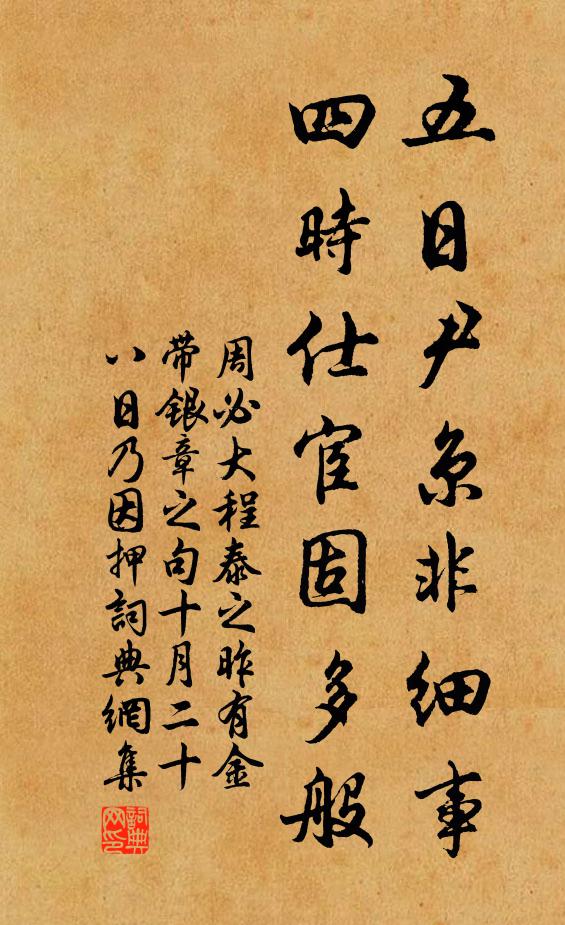 五日尹京非细事
四時仕宦固多般
周必大程泰之昨有金
带銀章之句十月二十
八日乃因押詞典網集
詞典
网印